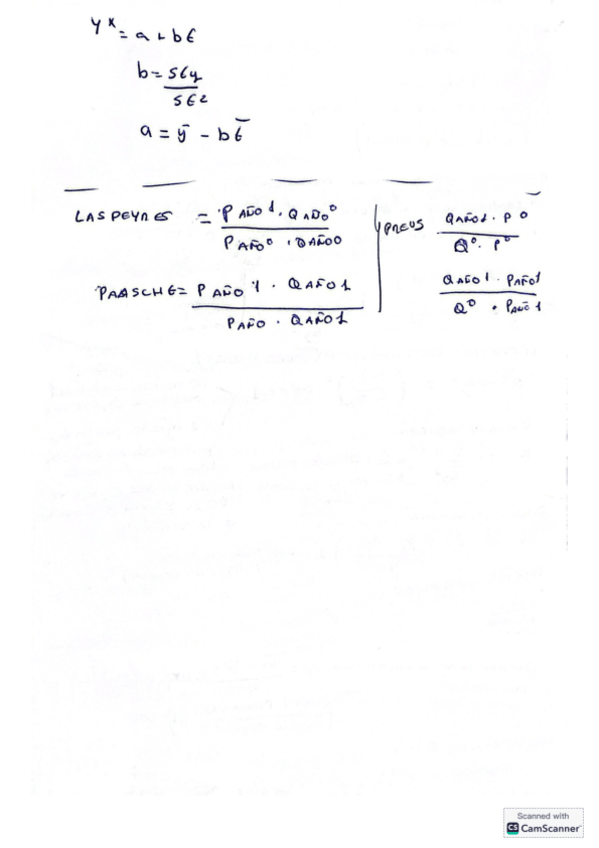 y* = a + bt
b = Sty / St2
a = ȳ - bt̄
LASPEYRES = P AÑO 1 . Q AÑO 0 / P AÑO 0 . Q AÑO 0
PAASCHE = P AÑO 1 . Q AÑO 1 / P AÑO . Q AÑO 1
Q AÑO 1 . P 0 / Q0 . P0
Q AÑO 1 . P AÑO 1 / Q0 . P AÑO 1
Scanned with
CS CamScanner